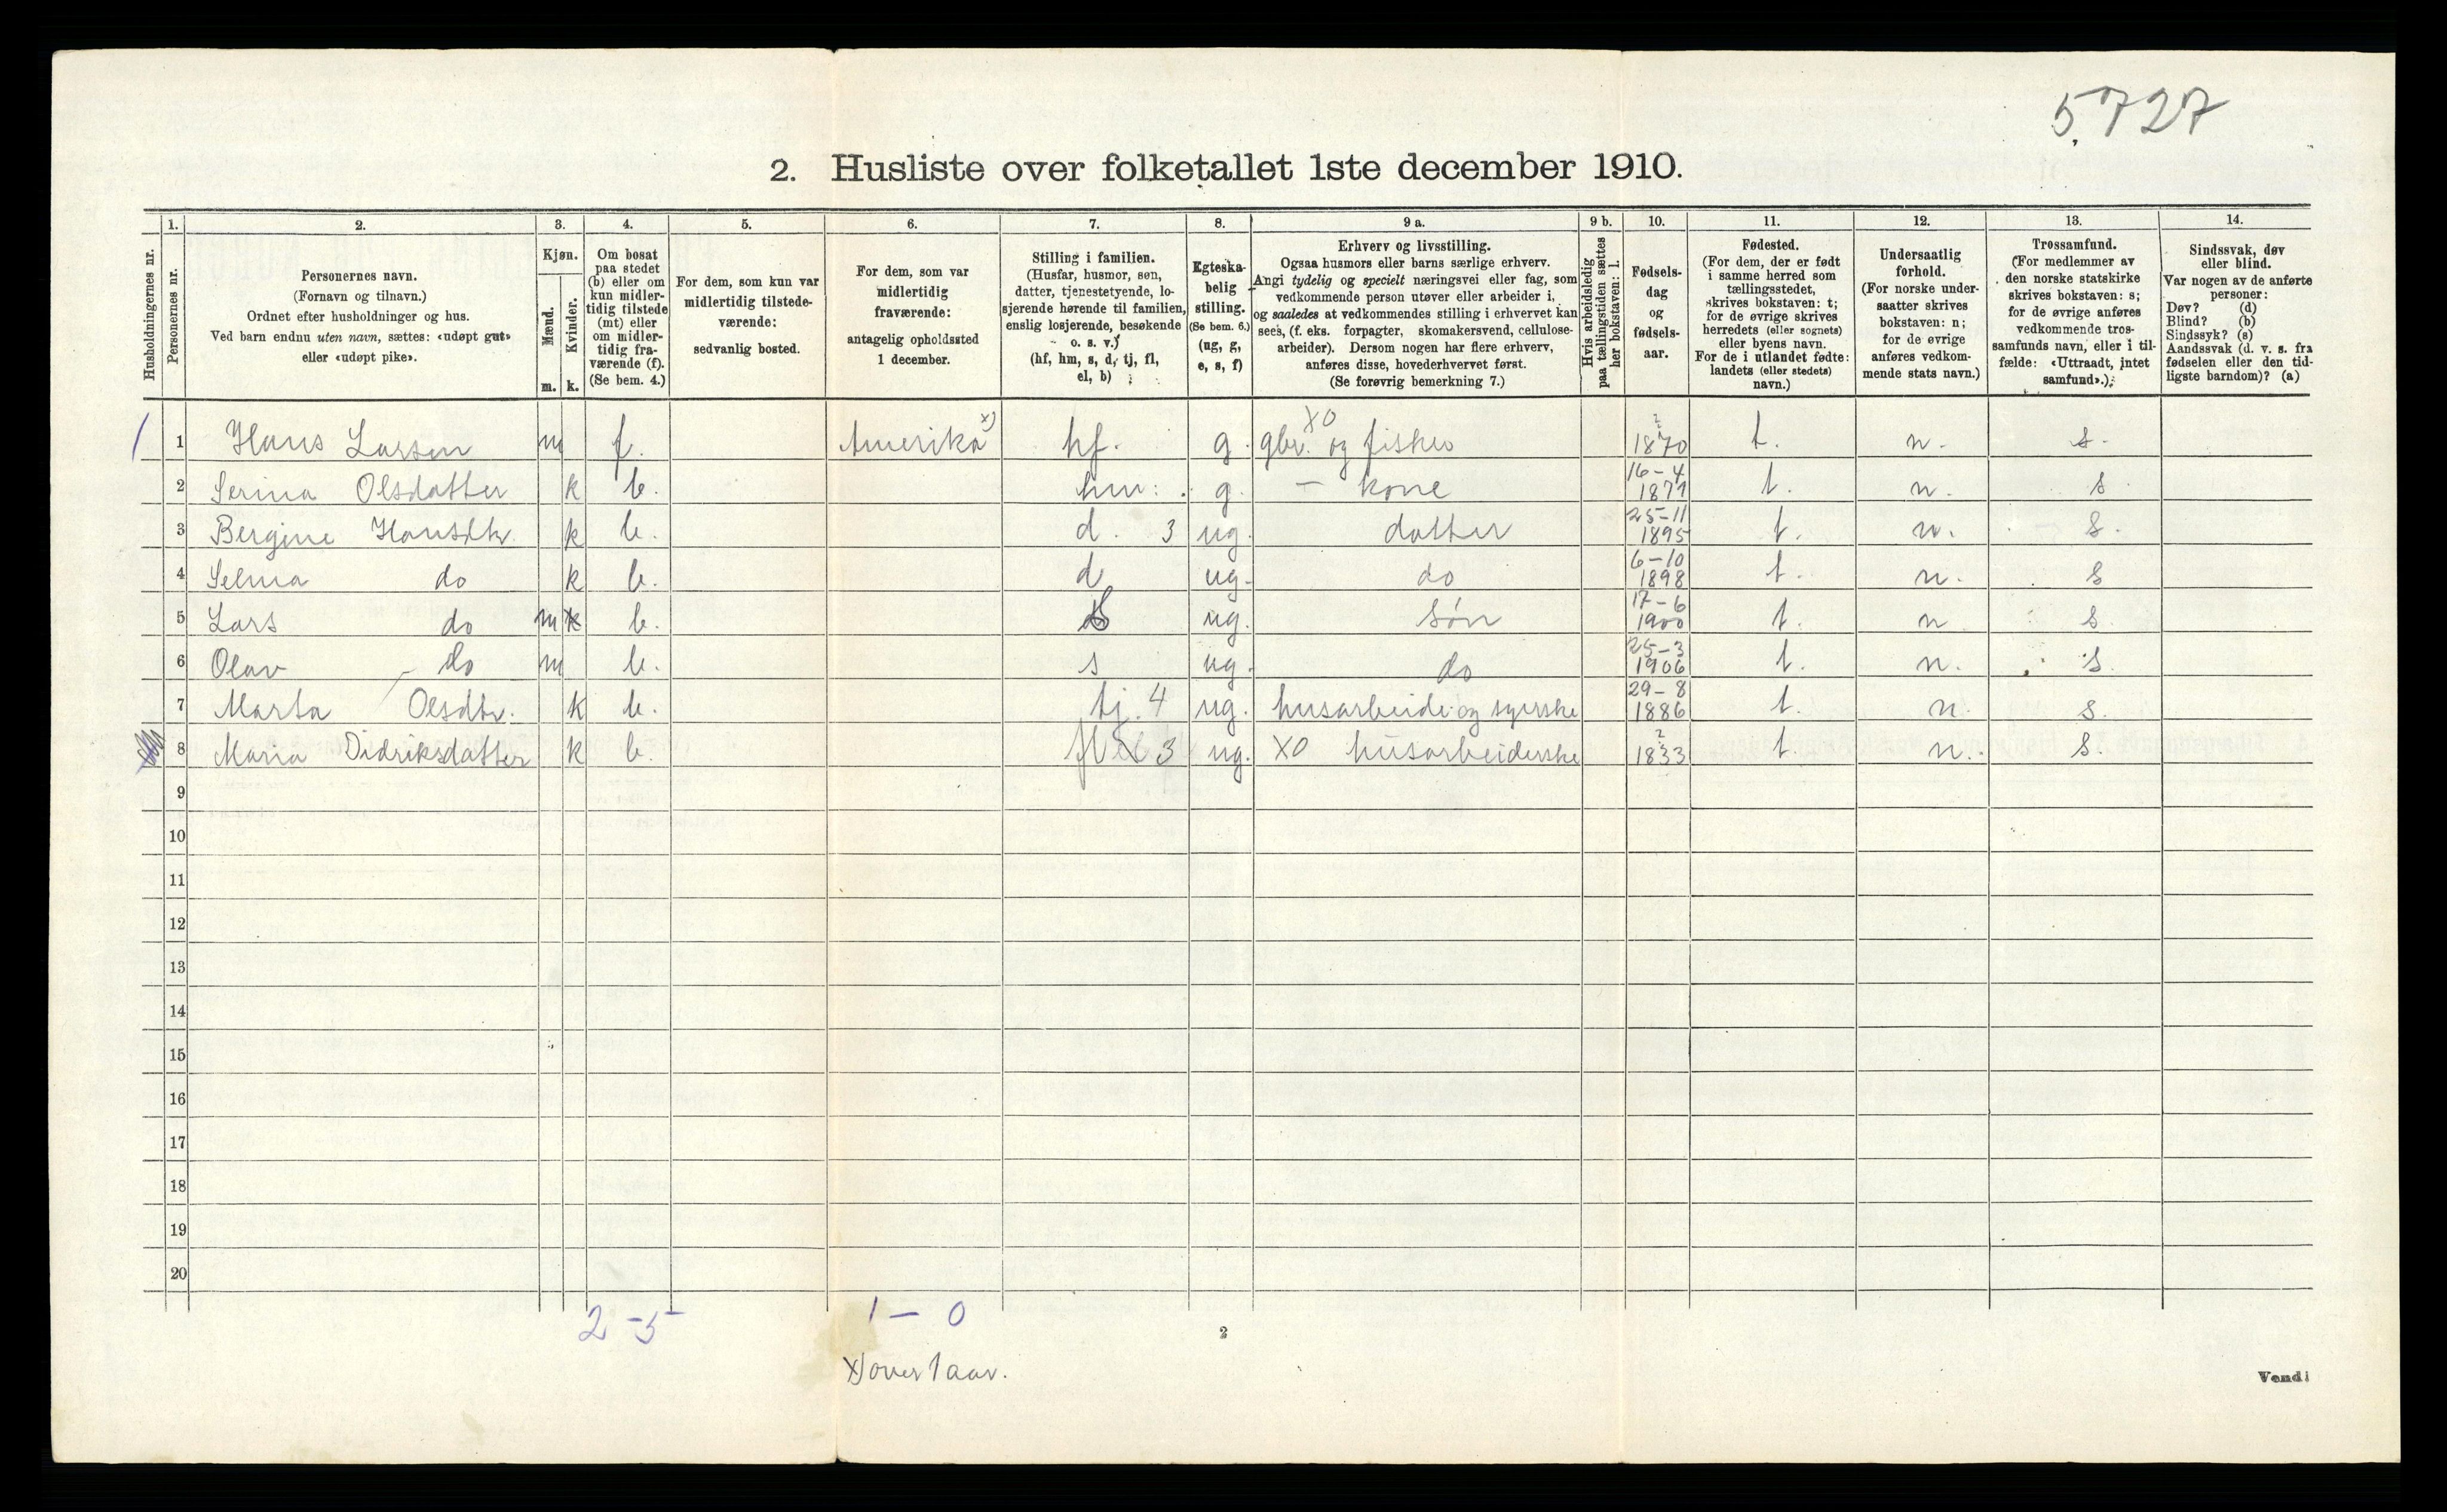 5727
2. Husliste over folketallet 1ste december 1910.
Husholdningernes nr.
1.
Personernes nr.
2.
Personernes navn.
(Fornavn og tilnavn.)
Ordnet efter husholdninger og hus.
Ved barn endnu uten navn, sættes: «udøpt gut»
eller «udøpt pike».
3.
Kjøn.
Mænd.
m.
Kvinder.
k.
4.
Om bosat
paa stedet
(b) eller om
kun midler-
tidig tilstede
(mt) eller
om midler-
tidig fra-
værende (f).
(Se bem. 4.)
5.
For dem, som kun var
midlertidig tilstede-
værende:
sedvanlig bosted.
6.
For dem, som var
midlertidig
fraværende:
antagelig opholdssted
1 december.
7.
Stilling i familien.
(Husfar, husmor, søn,
datter, tjenestetyende, lo-
sjerende hørende til familien,
enslig losjerende, besøkende
o. s. v.)
(hf, hm, s, d, tj, fl,
el, b)
8.
Egteska-
belig
stilling.
(Se bem. 6.)
(ug, g,
e, s, f)
9 a.
Erhverv og livsstilling.
Ogsaa husmors eller barns særlige erhverv.
Angi tydelig og specielt næringsvei eller fag, som
vedkommende person utøver eller arbeider i,
og saaledes at vedkommendes stilling i erhvervet kan
sees, (f. eks. forpagter, skomakersvend, cellulose-
arbeider). Dersom nogen har flere erhverv,
anføres disse, hovederhvervet først.
(Se forøvrig bemerkning 7.)
9 b.
Hvis arbeidsledig
paa tællingstiden sættes
her bokstaven: l.
10.
Fødsels-
dag
og
fødsels-
aar.
11.
Fødested.
(For dem, der er født
i samme herred som
tællingsstedet,
skrives bokstaven: t;
for de øvrige skrives
herredets (eller sognets)
eller byens navn.
For de i utlandet fødte:
landets (eller stedets)
navn.)
12.
Undersaatlig
forhold.
(For norske under-
saatter skrives
bokstaven: n;
for de øvrige
anføres vedkom-
mende stats navn.)
13.
Trossamfund.
(For medlemmer av
den norske statskirke
skrives bokstaven: s;
for de øvrige anføres
vedkommende tros-
samfunds navn, eller i til-
fælde: «Uttraadt, intet
samfund».)
14.
Sindssvak, døv
eller blind.
Var nogen av de anførte
personer:
Døv? (d)
Blind? (b)
Sindssyk? (s)
Aandssvak (d. v. s. fra
fødselen eller den tid-
ligste barndom)? (a)
1 1 Hans Larsen m f. Amerika x) hf. g. XO gbr. og fisker ? 1870 t. n. s.
2 Serina Olsdatter k b. hm. g. - kone 16-4 1871 t. n. s.
3 Bergine Hansdtr. k b. d. 3 ug. datter 25-11 1895 t. n. s.
4 Selma do k b. d ug. do 6-10 1898 t. n. s
5 Lars do m k b. s ug. søn 17-6 1900 t. n s.
6 Olav do m b. s ug. do 25-3 1906 t. n. s.
7 Marta Olsdtr. k b. tj. 4 ug. husarbeide og syerske 29-8 1886 t. n. s.
8 Maria Didriksdatter k b. 3 ug. XO husarbeiderske ? 1833 t n. s.
9
10
11
12
13
14
15
16
17
18
19
20
2-5 1-0
2
x) over 1 aar.
Vend!